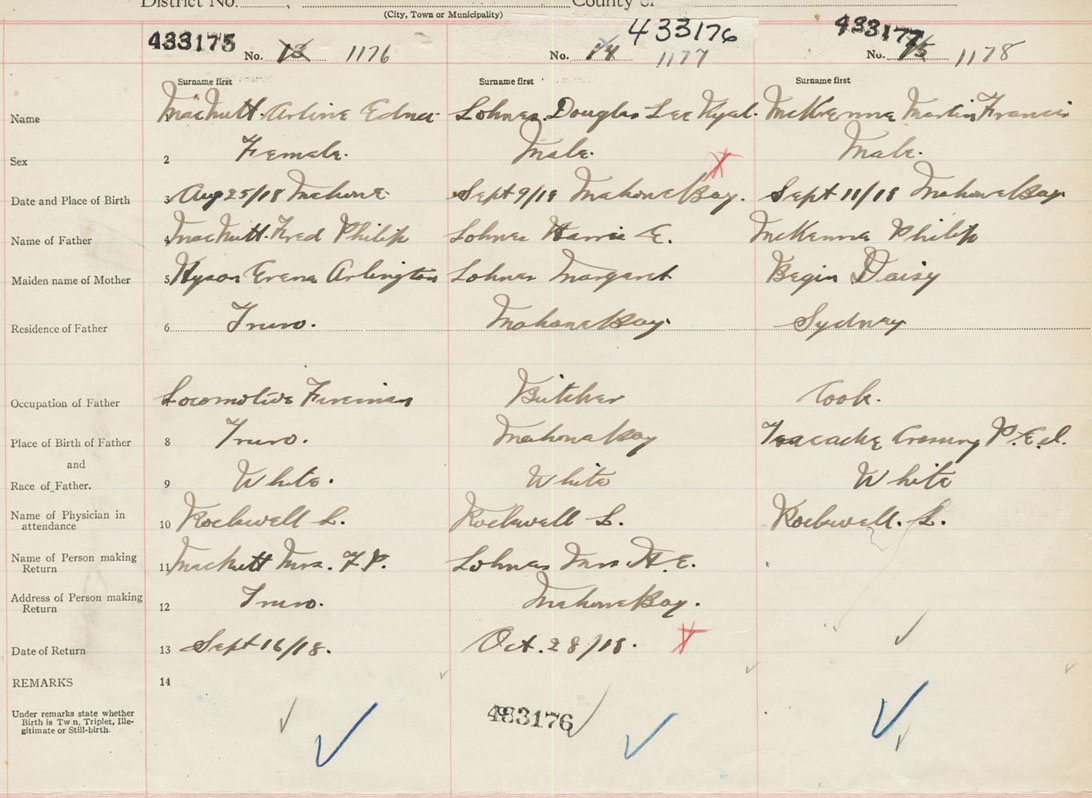 District No. , County of
(City, Town or Municipality)
433175 433176 433177
No. 13 1176 No. 14 1177 No. 15 1178
Surname first Surname first Surname first
Name MacNutt Arline Edna Lohnes Douglas Lee McKenna Martin Francis
Sex 2 Female. Male. Male.
Date and Place of Birth 3 Aug 25/18 Mahone Sept 9/18 Mahone Bay. Sept 11/18 Mahone Bay
Name of Father 4 MacNutt Fred Philip Lohnes Harris E. McKenna Philip
Maiden name of Mother 5 Hyson Erena Arlington Lohnes Margaret Begin Daisy
Residence of Father 6 Truro. Mahone Bay. Sydney
Occupation of Father Locomotive Fireman Butcher Cook.
Place of Birth of Father 8 Truro. Mahone Bay P.E.I.
and
Race of Father. 9 White. White White
Name of Physician in
attendance 10 Rockwell L. Rockwell L. Rockwell. L.
Name of Person making
Return 11 MacNutt Mrs. F.P. Lohnes Mrs H.E.
Address of Person making
Return 12 Truro. Mahone Bay.
Date of Return 13 Sept 16/18. Oct. 28/18.
REMARKS 14
Under remarks state whether
Birth is Twn, Triplet, Ille-
gitimate or Still-birth.
433176